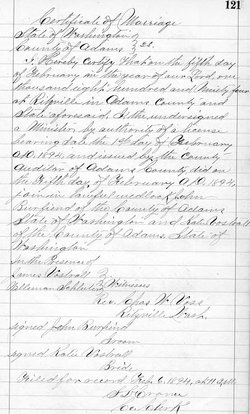 121
Certificate of Marriage
State of Washington
County of Adams } ss.
I Hereby Certify That on the fifth day
of February in the year of our Lord, one
thousand eight hundred and Ninety four
at Ritzville in Adams County and
State aforesaid, I, the undersigned
a Minister, by authority of a license
bearing date the 1st day of February
A.D. 1894, and issued by the County
Auditor of Adams County did on
the Fifth day of February A.D. 1894,
join in lawful wedlock John
of the County of Adams
State of Washington and Kate
of the County of Adams, State of
Washington
In the Presence of
James
Witnesses
Rev. Chas W.
Ritzville Wash.
signed John
Groom
signed Kate
Bride
Filed for record Feb 6, 1894, at 11
Co. Clerk